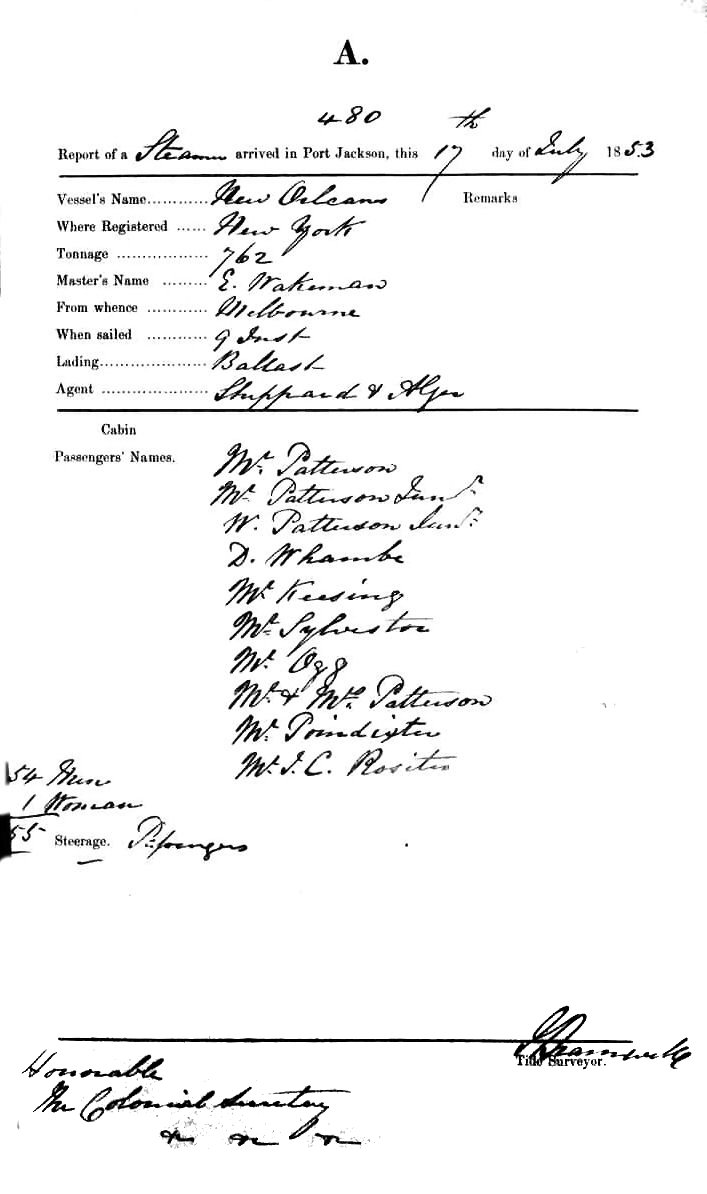 A.
480
Report of a Steamer arrived in Port Jackson, this 17th day of July 1853
Vessel's Name............ New Orleans Remarks
Where Registered ...... New York
Tonnage .................. 762
Master's Name ......... E. Wakeman
From whence ............ Melbourne
When sailed ............ 9 Inst
Lading..................... Ballast
Agent ..................... Sheppard & Alger
Cabin
Passengers' Names.
Mr. Patterson
Mr. Patterson Junr.
W. Patterson Junr.
D. Whambe
Mr. Keesing
Mr. Sylvestor
Mr. Ogg
Mr. & Mrs. Patterson
Mr. Poindixter
Mr. J. C. Rositer
54 Men
1 Woman
55 Steerage. Passengers
Title Surveyor.
Honorable
The Colonial Secretary
&c &c &c